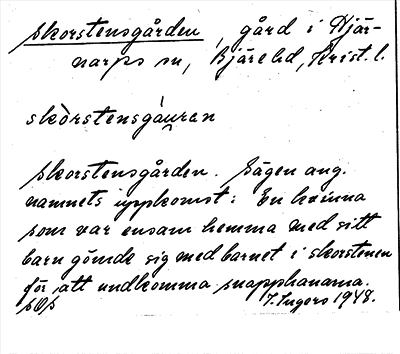 Skorstensgården, gård i Hjär-
narps sn, Bjäre hd, Krist. l.
skòrstensgáuran
Skorstensgården. Sägen ang.
namnets uppkomst: En kvinna
som var ensam hemma med sitt
barn gömde sig med barnet i skorstenen
för att undkomma snapphanarna.
I. Ingers 1948.